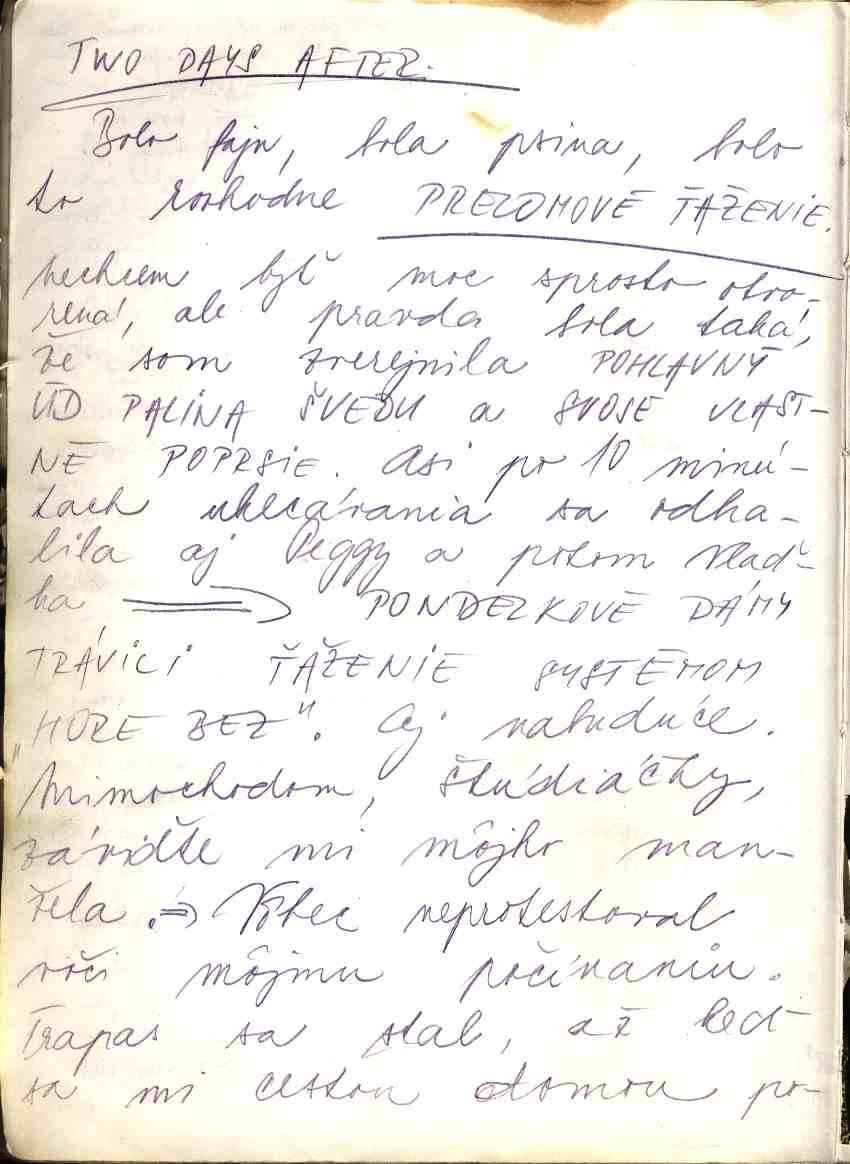 TWO DAYS AFTER.
Bolo fajn, bola psina, bolo
to rozhodne PRELOMOVÉ ŤAŽENIE.
Nechcem byť moc sprosto otvo-
rená, ale pravda bola taká,
že som zverejnila POHLAVNÝ
ÚD PALINA ŠVEDU a SVOJE VLAST-
NÉ POPRSIE. Asi po 10 minú-
tach ukecávania sa odha-
lila aj Peggy a potom Vlaď-
ka ⇒ PONDELKOVÉ DÁMY
TRÁVICI ŤAŽENIE SYSTÉMOM
„HORE BEZ". Aj nabudúce.
Mimochodom, študiáčky,
závidťe mi môjho man-
žela. ⇒ Vôbec neprotestoval
voči môjmu počínaniu.
Trapas sa stal, až keď
sa mi cestou domov po-